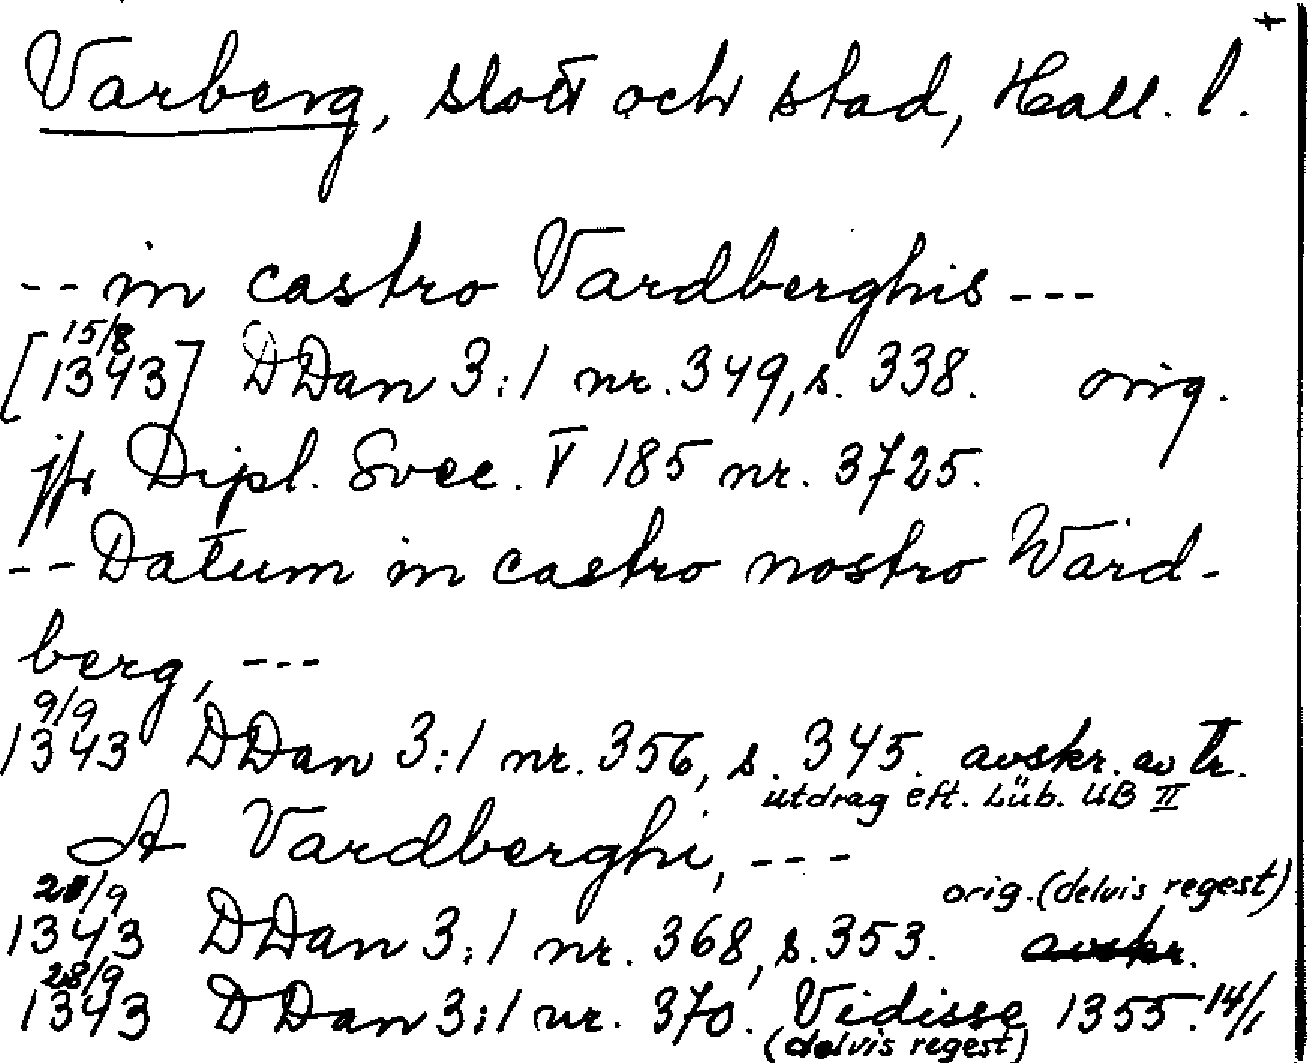 +
Varberg, slott och stad, Hall. l.
-- in castro Vardberghis ---
15/8
[1343] DDan 3:1 nr. 349, s. 338. orig.
jfr Dipl. Svec. V 185 nr. 3725.
-- Datum in castro nostro Ward-
berg, ---
9/9
1343 DDan 3:1 nr. 356, s. 345. avskr. av tr.
utdrag eft. Lüb. UB II
A Vardberghi, ---
/9 orig. (delvis regest)
1343 DDan 3:1 nr. 368, s. 353. avskr.
28/9
1343 DDan 3:1 nr. 370. Vidisse 1355. 14/1
(delvis regest)